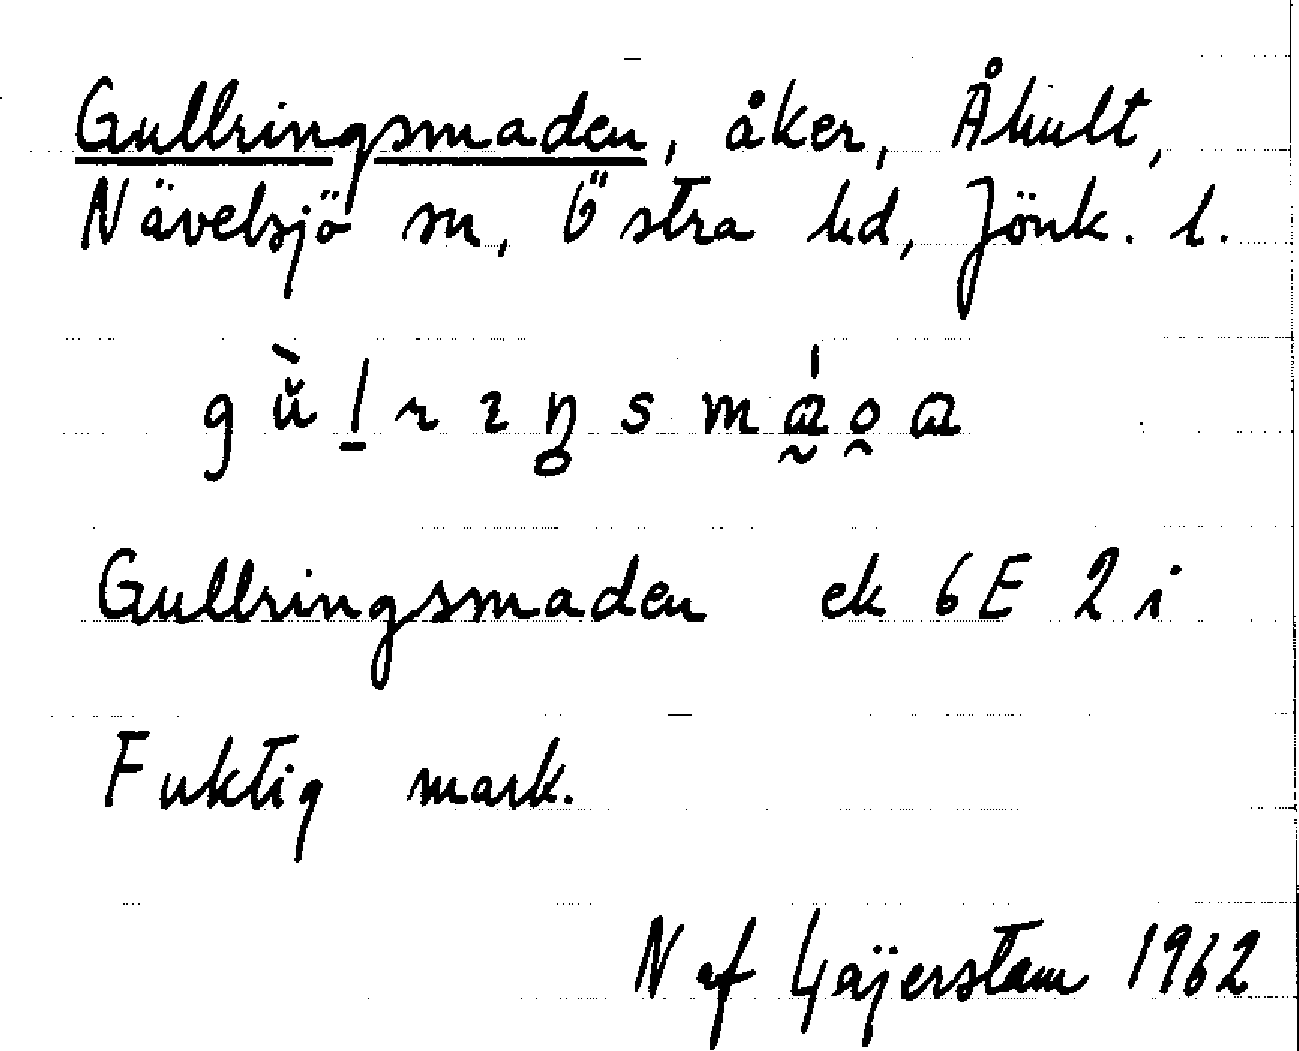 Gullringsmaden, åker, Åhult,
Nävelsjö sn, Östra hd, Jönk. l.
Gullringsmaden ek 6E 2i
Fuktig mark.
N af Gaijerstam 1962